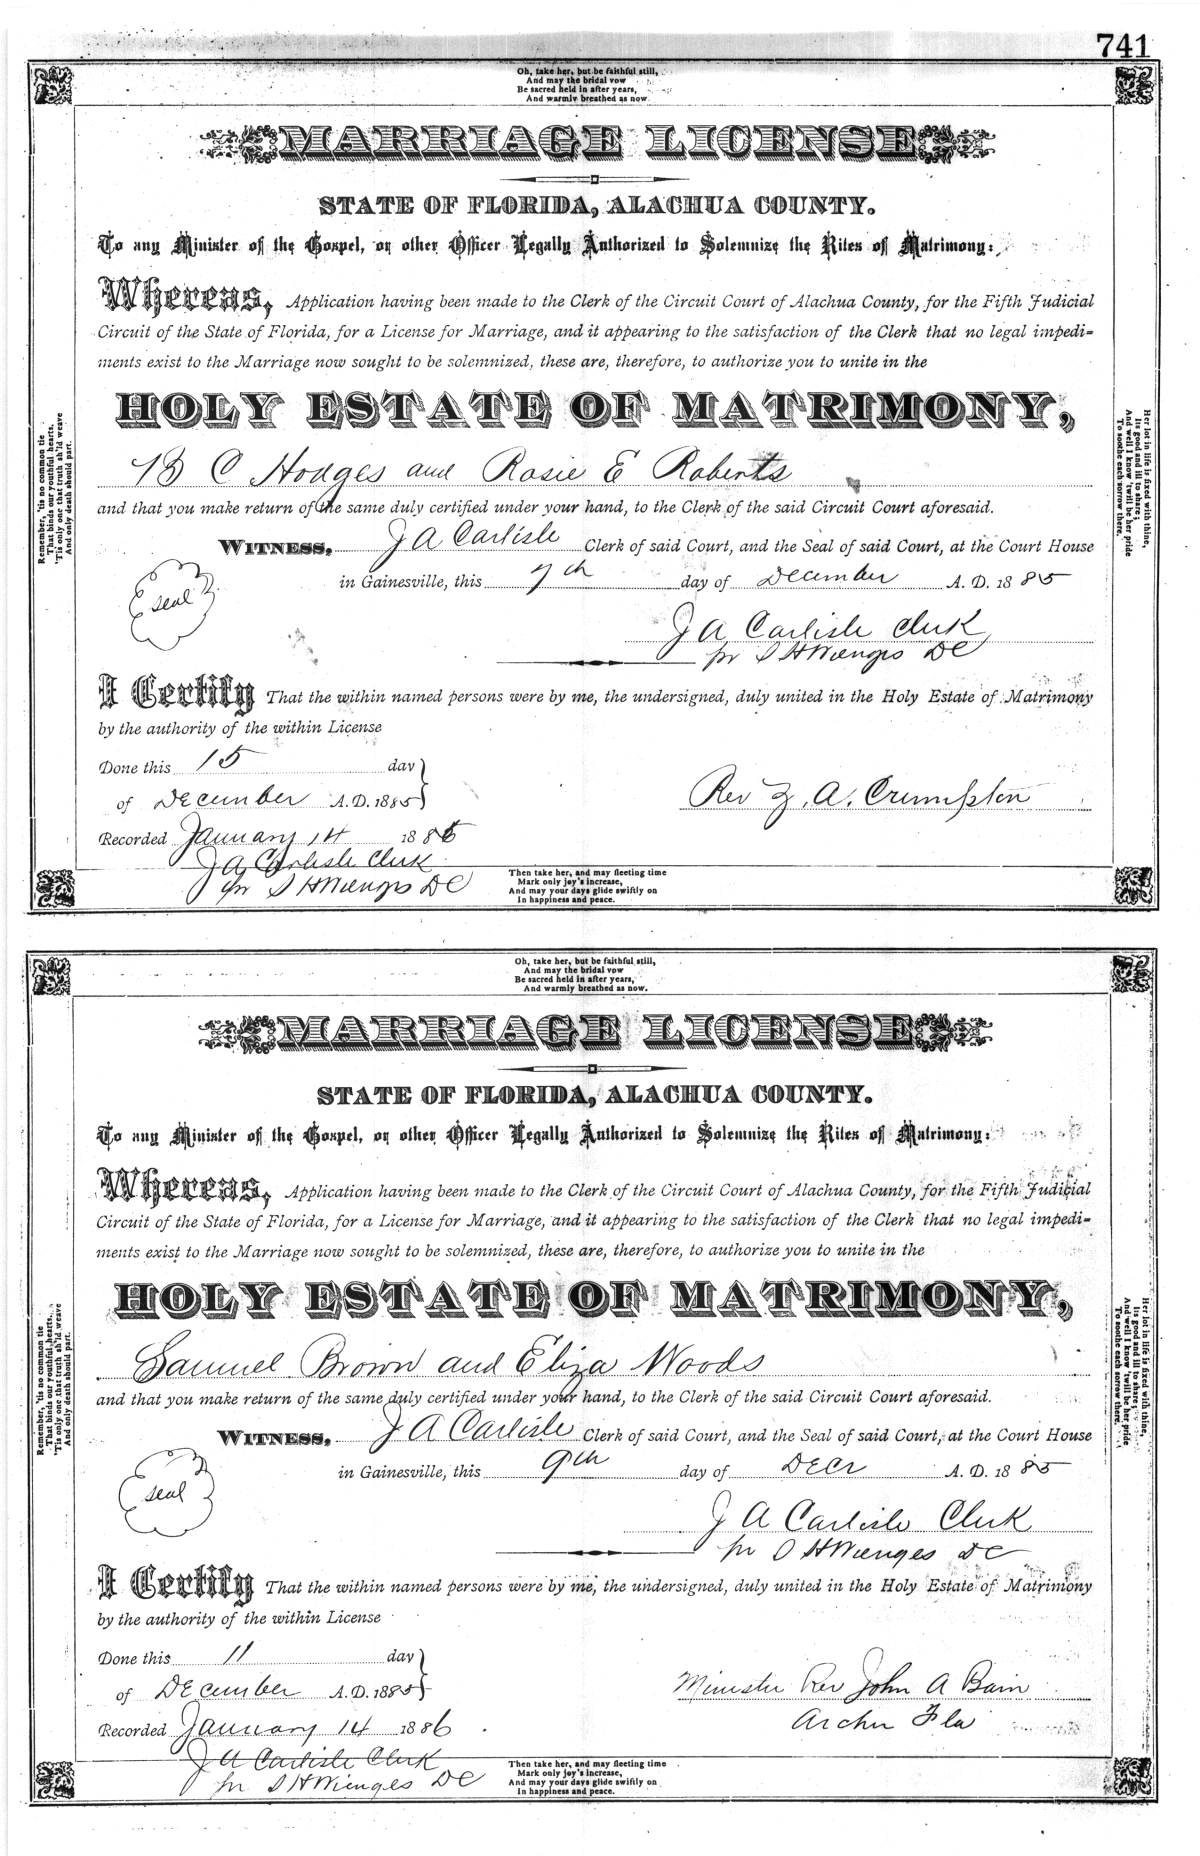 741
Oh, take her, but be faithful still,
And may the bridal vow
Be sacred held in after years,
And warmly breathed as now.
MARRIAGE LICENSE
STATE OF FLORIDA, ALACHUA COUNTY.
To any Minister of the Gospel, or other Officer Legally Authorized to Solemnize the Rites of Matrimony:
Whereas, Application having been made to the Clerk of the Circuit Court of Alachua County, for the Fifth Judicial
Circuit of the State of Florida, for a License for Marriage, and it appearing to the satisfaction of the Clerk that no legal impedi-
ments exist to the Marriage now sought to be solemnized, these are, therefore, to authorize you to unite in the
HOLY ESTATE OF MATRIMONY,
B C Hodges and Rosie E Roberts
and that you make return of the same duly certified under your hand, to the Clerk of the said Circuit Court aforesaid.
WITNESS, J A Carlisle Clerk of said Court, and the Seal of said Court, at the Court House
in Gainesville, this 7th day of December A. D. 1885
seal
J A Carlisle Clerk
pr S H Wienges DC
I Certify That the within named persons were by me, the undersigned, duly united in the Holy Estate of Matrimony
by the authority of the within License
Done this 15 day
of December A.D. 1885
Rev Z. A. Crumpton
Recorded January 14 1886
J A Carlisle Clerk
pr S H Wienges DC
Then take her, and may fleeting time
Mark only joy's increase,
And may your days glide swiftly on
In happiness and peace.
Remember, 'tis no common tie
That binds our youthful hearts,
'Tis only one that truth sh'ld weave
And only death should part.
Her lot in life is fixed with thine,
Its good and ill to share;
And well I know 'twill be her pride
To soothe each sorrow there.
Oh, take her, but be faithful still,
And may the bridal vow
Be sacred held in after years,
And warmly breathed as now.
MARRIAGE LICENSE
STATE OF FLORIDA, ALACHUA COUNTY.
To any Minister of the Gospel, or other Officer Legally Authorized to Solemnize the Rites of Matrimony:
Whereas, Application having been made to the Clerk of the Circuit Court of Alachua County, for the Fifth Judicial
Circuit of the State of Florida, for a License for Marriage, and it appearing to the satisfaction of the Clerk that no legal impedi-
ments exist to the Marriage now sought to be solemnized, these are, therefore, to authorize you to unite in the
HOLY ESTATE OF MATRIMONY,
Samuel Brown and Eliza Woods
and that you make return of the same duly certified under your hand, to the Clerk of the said Circuit Court aforesaid.
WITNESS, J A Carlisle Clerk of said Court, and the Seal of said Court, at the Court House
in Gainesville, this 9th day of Decr A. D. 1885
seal
J A Carlisle Clerk
pr S H Wienges DC
I Certify That the within named persons were by me, the undersigned, duly united in the Holy Estate of Matrimony
by the authority of the within License
Done this 11 day
of December A.D. 1885
Minister Rev John A Bain
Archer Fla
Recorded January 14 1886
J A Carlisle Clerk
pr S H Wienges DC
Then take her, and may fleeting time
Mark only joy's increase,
And may your days glide swiftly on
In happiness and peace.
Remember, 'tis no common tie
That binds our youthful hearts,
'Tis only one that truth sh'ld weave
And only death should part.
Her lot in life is fixed with thine,
Its good and ill to share;
And well I know 'twill be her pride
To soothe each sorrow there.